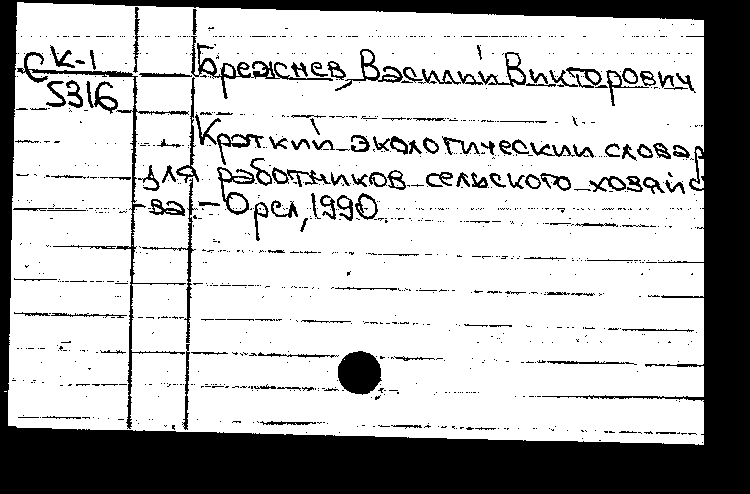 СК-1
5316
Брежнев, Василий Викторович
Краткий экологический словар
для работников сельского хозяйс
-ва - Орел, 1990